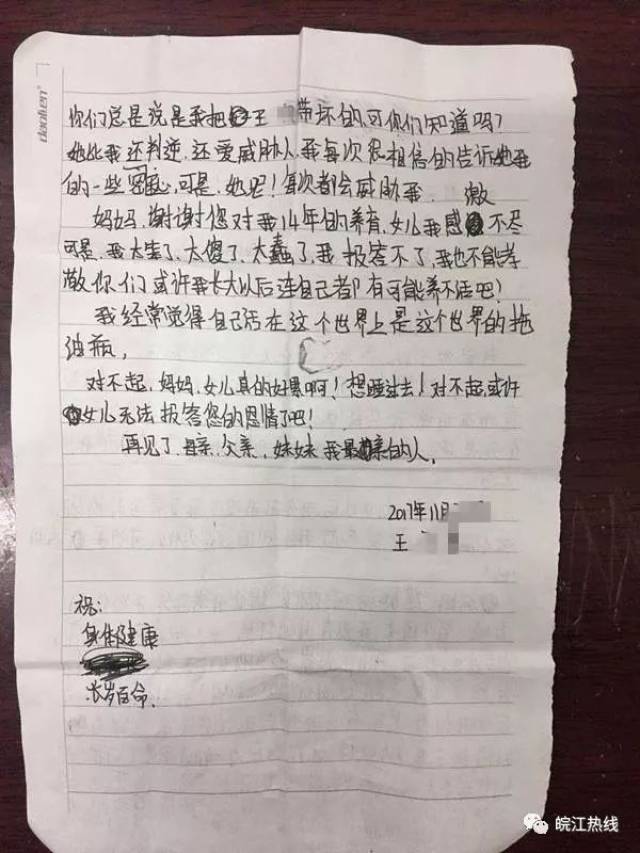 daolien
你们总是说是我把王 带坏的,可你们知道吗?
她比我还判逆,还爱威胁人,我每次很相信的告诉她我
的一些心,可是,她呢!每次都会威胁我.
妈妈,谢谢您对我14年的养育,女儿我感激不尽
可是,我太笨了,太傻了,太蠢了,我报答不了,我也不能孝
敬你们或许我长大以后连自己都有可能养不活吧!
我经常觉得自己活在这个世界上是这个世界的拖
油瓶,
对不起,妈妈,女儿真的好累啊!想睡过去!对不起,或许
女儿无法报答您的恩情了吧!
再见了,母亲,父亲,妹妹我最亲的人.
2017年11月
王
祝:
身体健康
长岁百命.
皖江热线